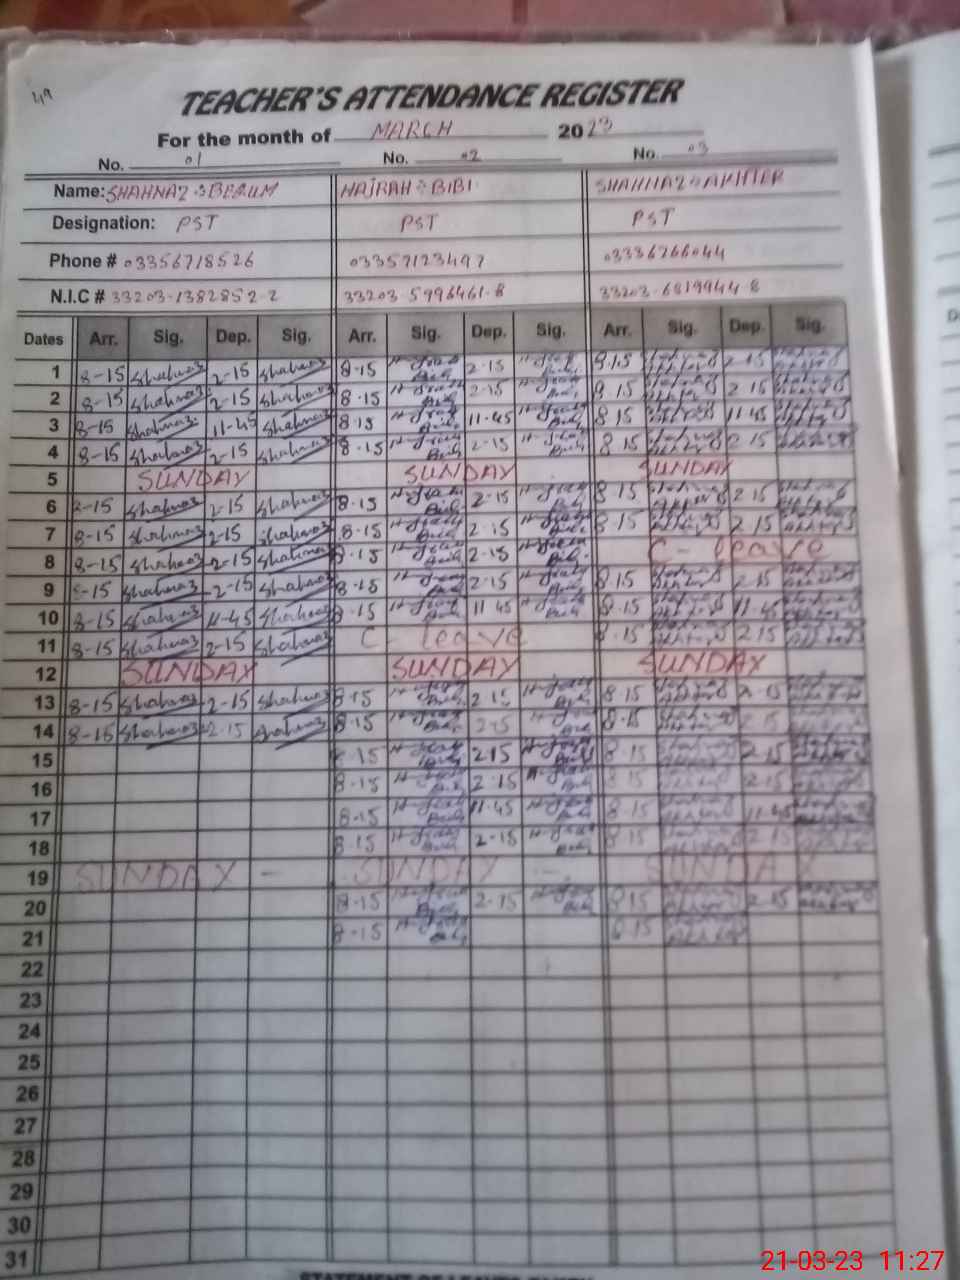 49
TEACHER'S ATTENDANCE REGISTER
For the month of MARCH 2023
No. 01 No. 02 No. 03
Name: SHAHNAZ BEGUM HAJRAH BIBI SHAHNAZ AKHTER
Designation: PST PST PST
Phone # 03356718526 03357123497 03336266044
N.I.C # 33203-1382852-2 33203-5996461-8 33203-6819944-8
Dates Arr. Sig. Dep. Sig. Arr. Sig. Dep. Sig. Arr. Sig. Dep. Sig.
1 8-15 Shahnaz 2-15 Shahnaz 8-15 2-15 2-15
2 8-15 Shahnaz 2-15 Shahnaz 8-15 2-15 2-15
3 8-15 Shahnaz 11-45 Shahnaz 8-15 11-45 8-15 11-45
4 8-15 Shahnaz 2-15 Shahnaz 8-15 2-15 8-15 2-15
5 SUNDAY SUNDAY SUNDAY
6 8-15 Shahnaz 2-15 Shahnaz 8-15 2-15 8-15 2-15
7 8-15 Shahnaz 2-15 Shahnaz 8-15 2-15 8-15 2-15
8 8-15 Shahnaz 2-15 Shahnaz 8-15 2-15 C- leave
9 8-15 Shahnaz 2-15 Shahnaz 8-15 2-15 8-15 2-15
10 8-15 Shahnaz 11-45 Shahnaz 8-15 11-45 8-15 11-45
11 8-15 Shahnaz 2-15 Shahnaz C- leave 8-15 2-15
12 SUNDAY SUNDAY SUNDAY
13 8-15 Shahnaz 2-15 Shahnaz 8-15 2-15 8-15 2-15
14 8-15 Shahnaz 2-15 Shahnaz 8-15 2-15 8-15 2-15
15 8-15 2-15 8-15 2-15
16 8-15 2-15 8-15 2-15
17 8-15 11-45 8-15 11-45
18 8-15 2-15 8-15 2-15
19 SUNDAY - SUNDAY - SUNDAY
20 8-15 2-15 8-15 2-15
21 8-15 8-15
22
23
24
25
26
27
28
29
30
31
21-03-23 11:27